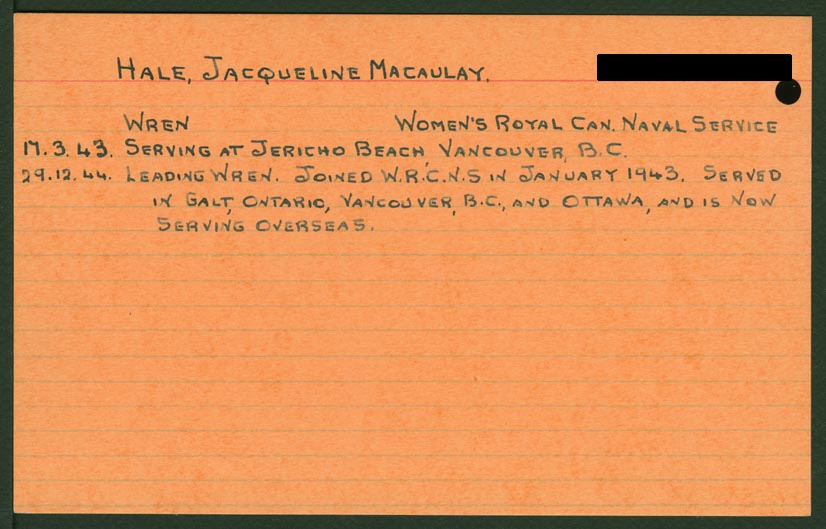 HALE, JACQUELINE MACAULAY.
WREN WOMEN'S ROYAL CAN. NAVAL SERVICE
17.3.43. SERVING AT JERICHO BEACH, VANCOUVER, B.C.
29.12.44. LEADING WREN. JOINED W.R.C.N.S IN JANUARY 1943. SERVED
IN GALT, ONTARIO, VANCOUVER, B.C., AND OTTAWA, AND IS NOW
SERVING OVERSEAS.